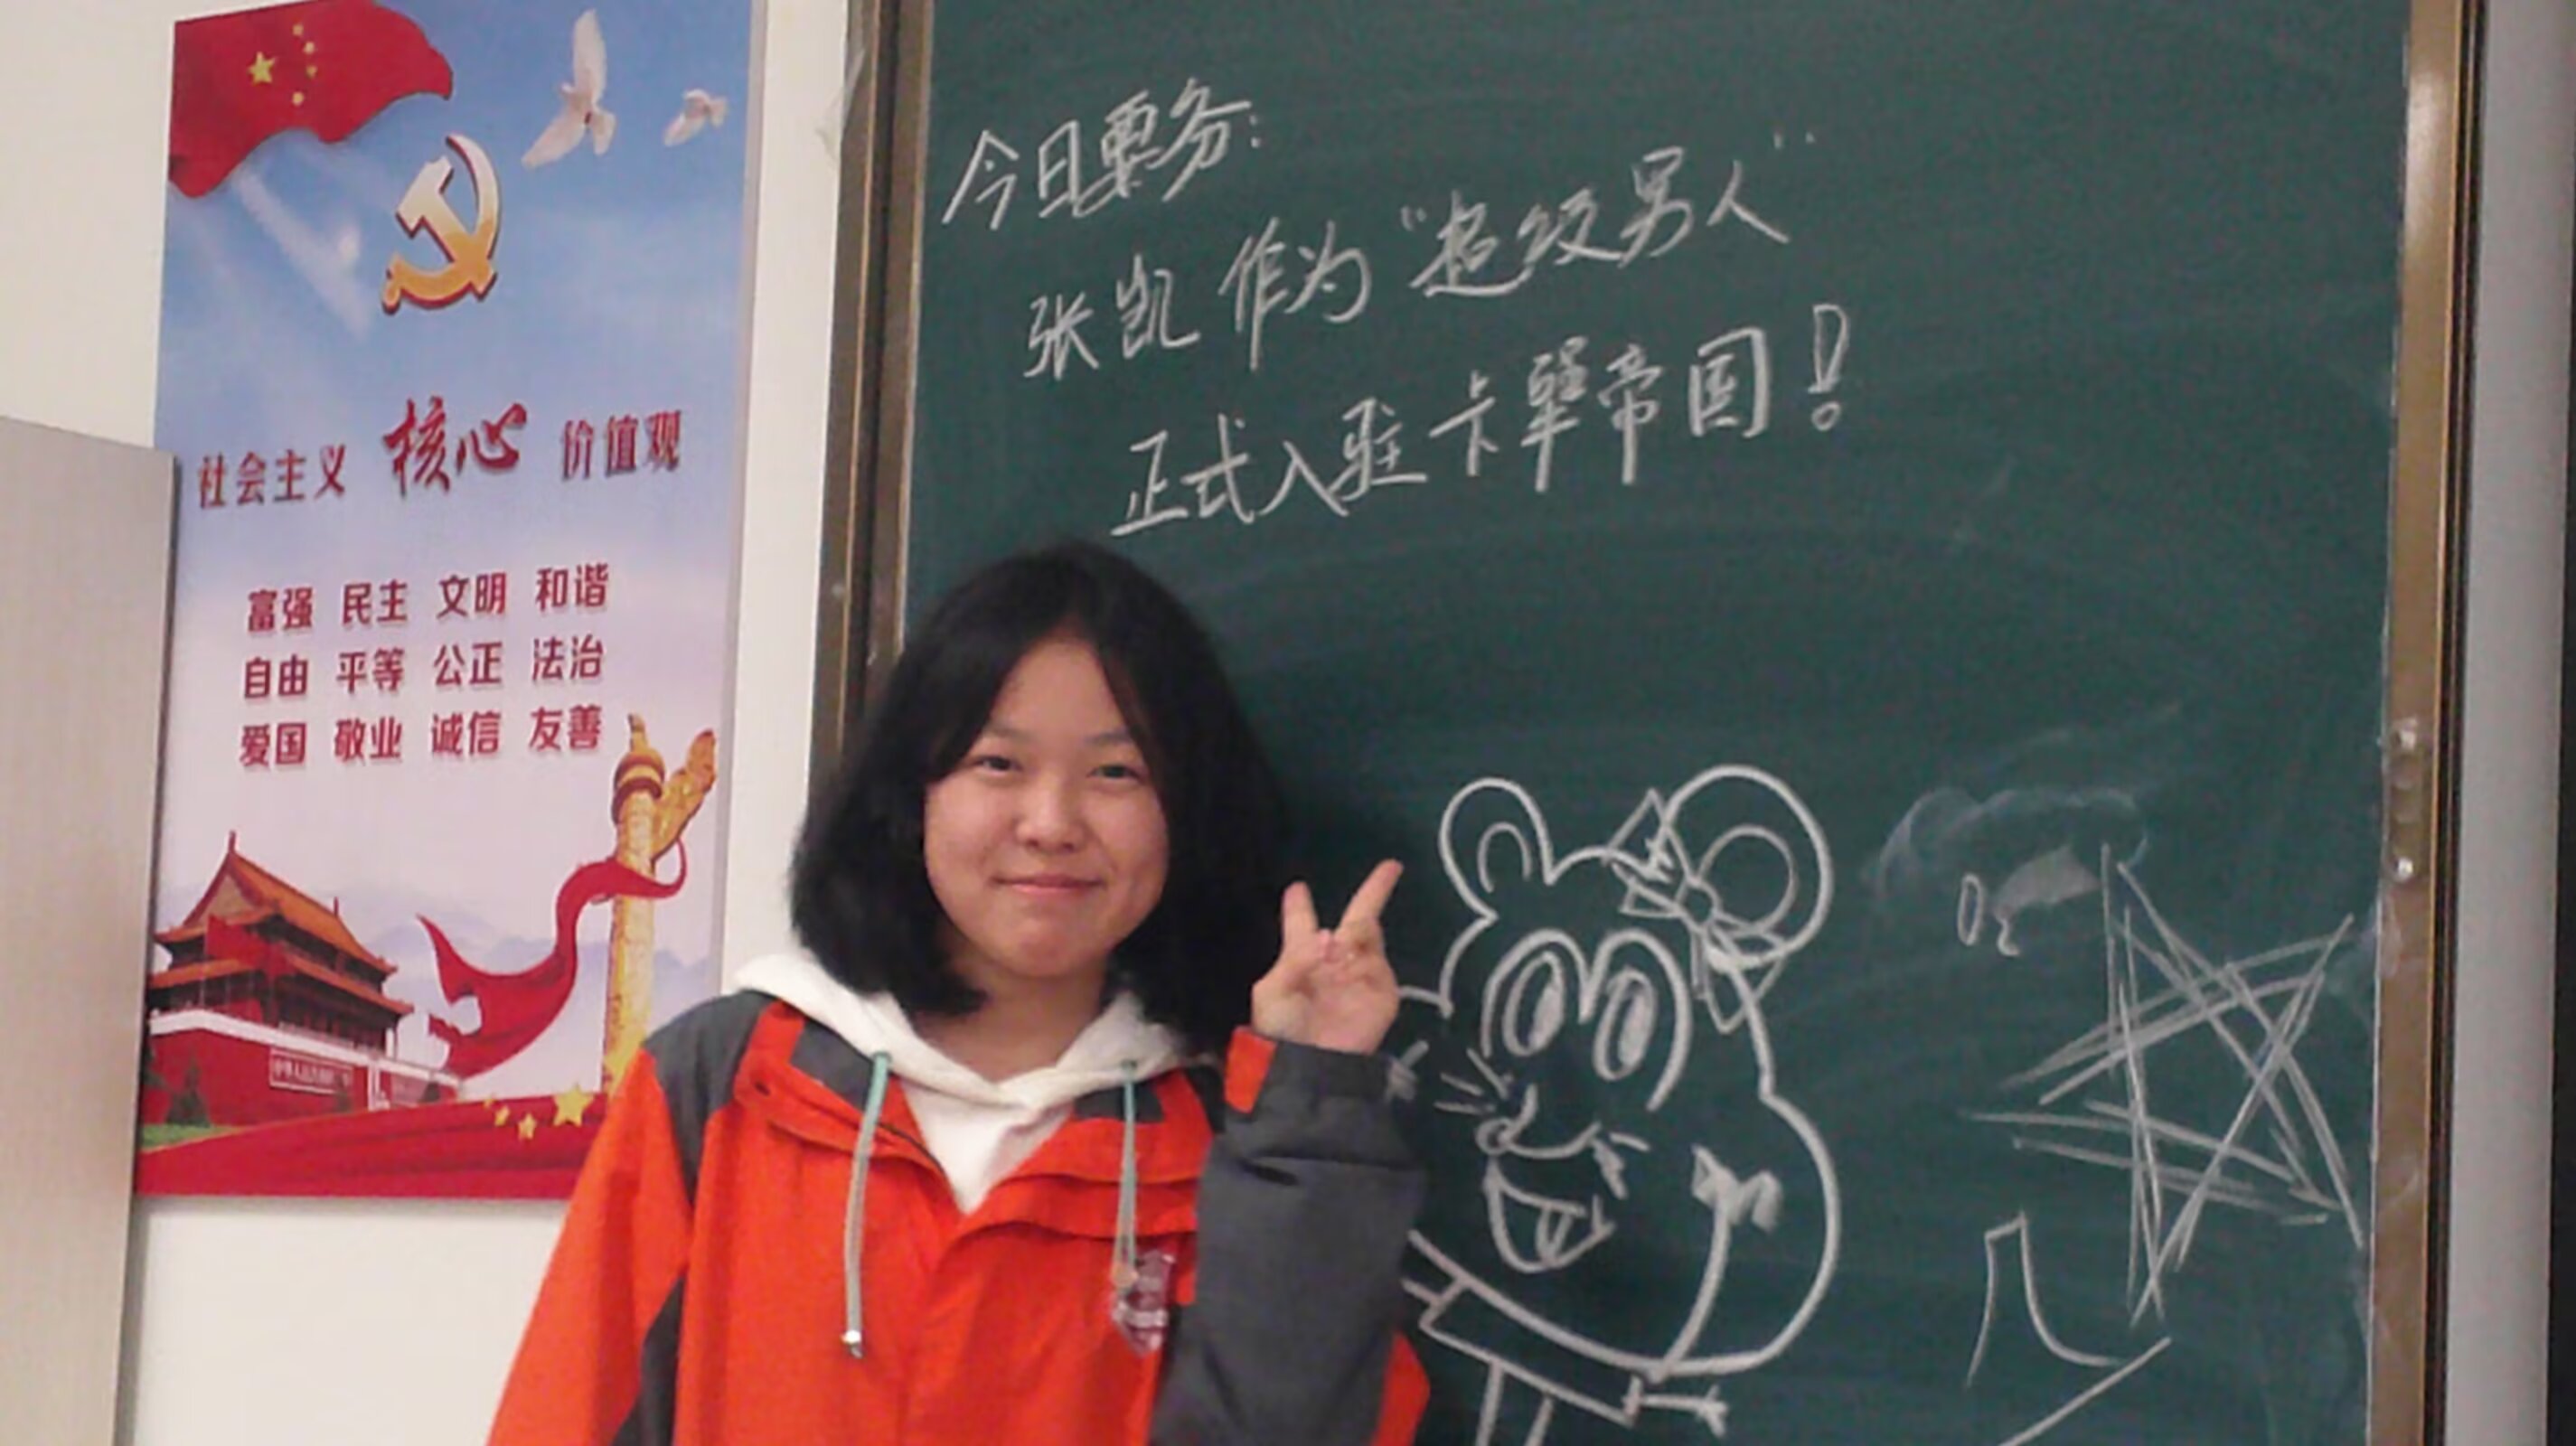 社会主义 核心 价值观
富强 民主 文明 和谐
自由 平等 公正 法治
爱国 敬业 诚信 友善
今日要务:
张凯作为“超级男人”
正式入驻卡犟帝国!